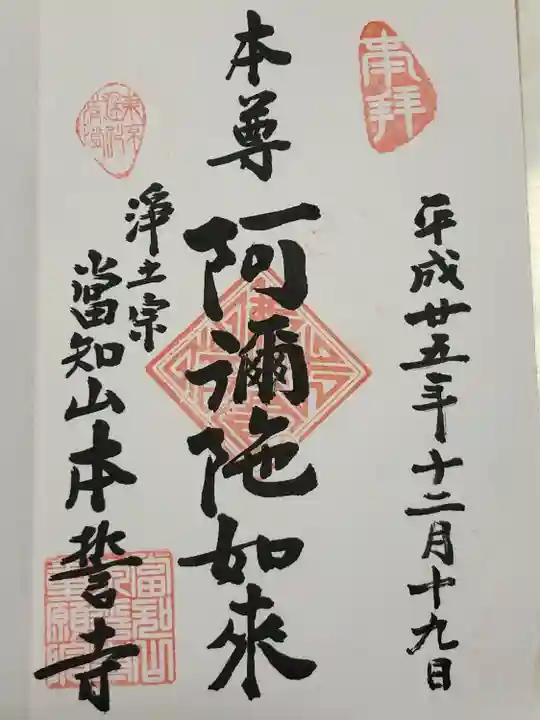 奉拝
平成廿五年十二月十九日
本尊
阿彌陀如来
浄土宗
當知山本誓寺